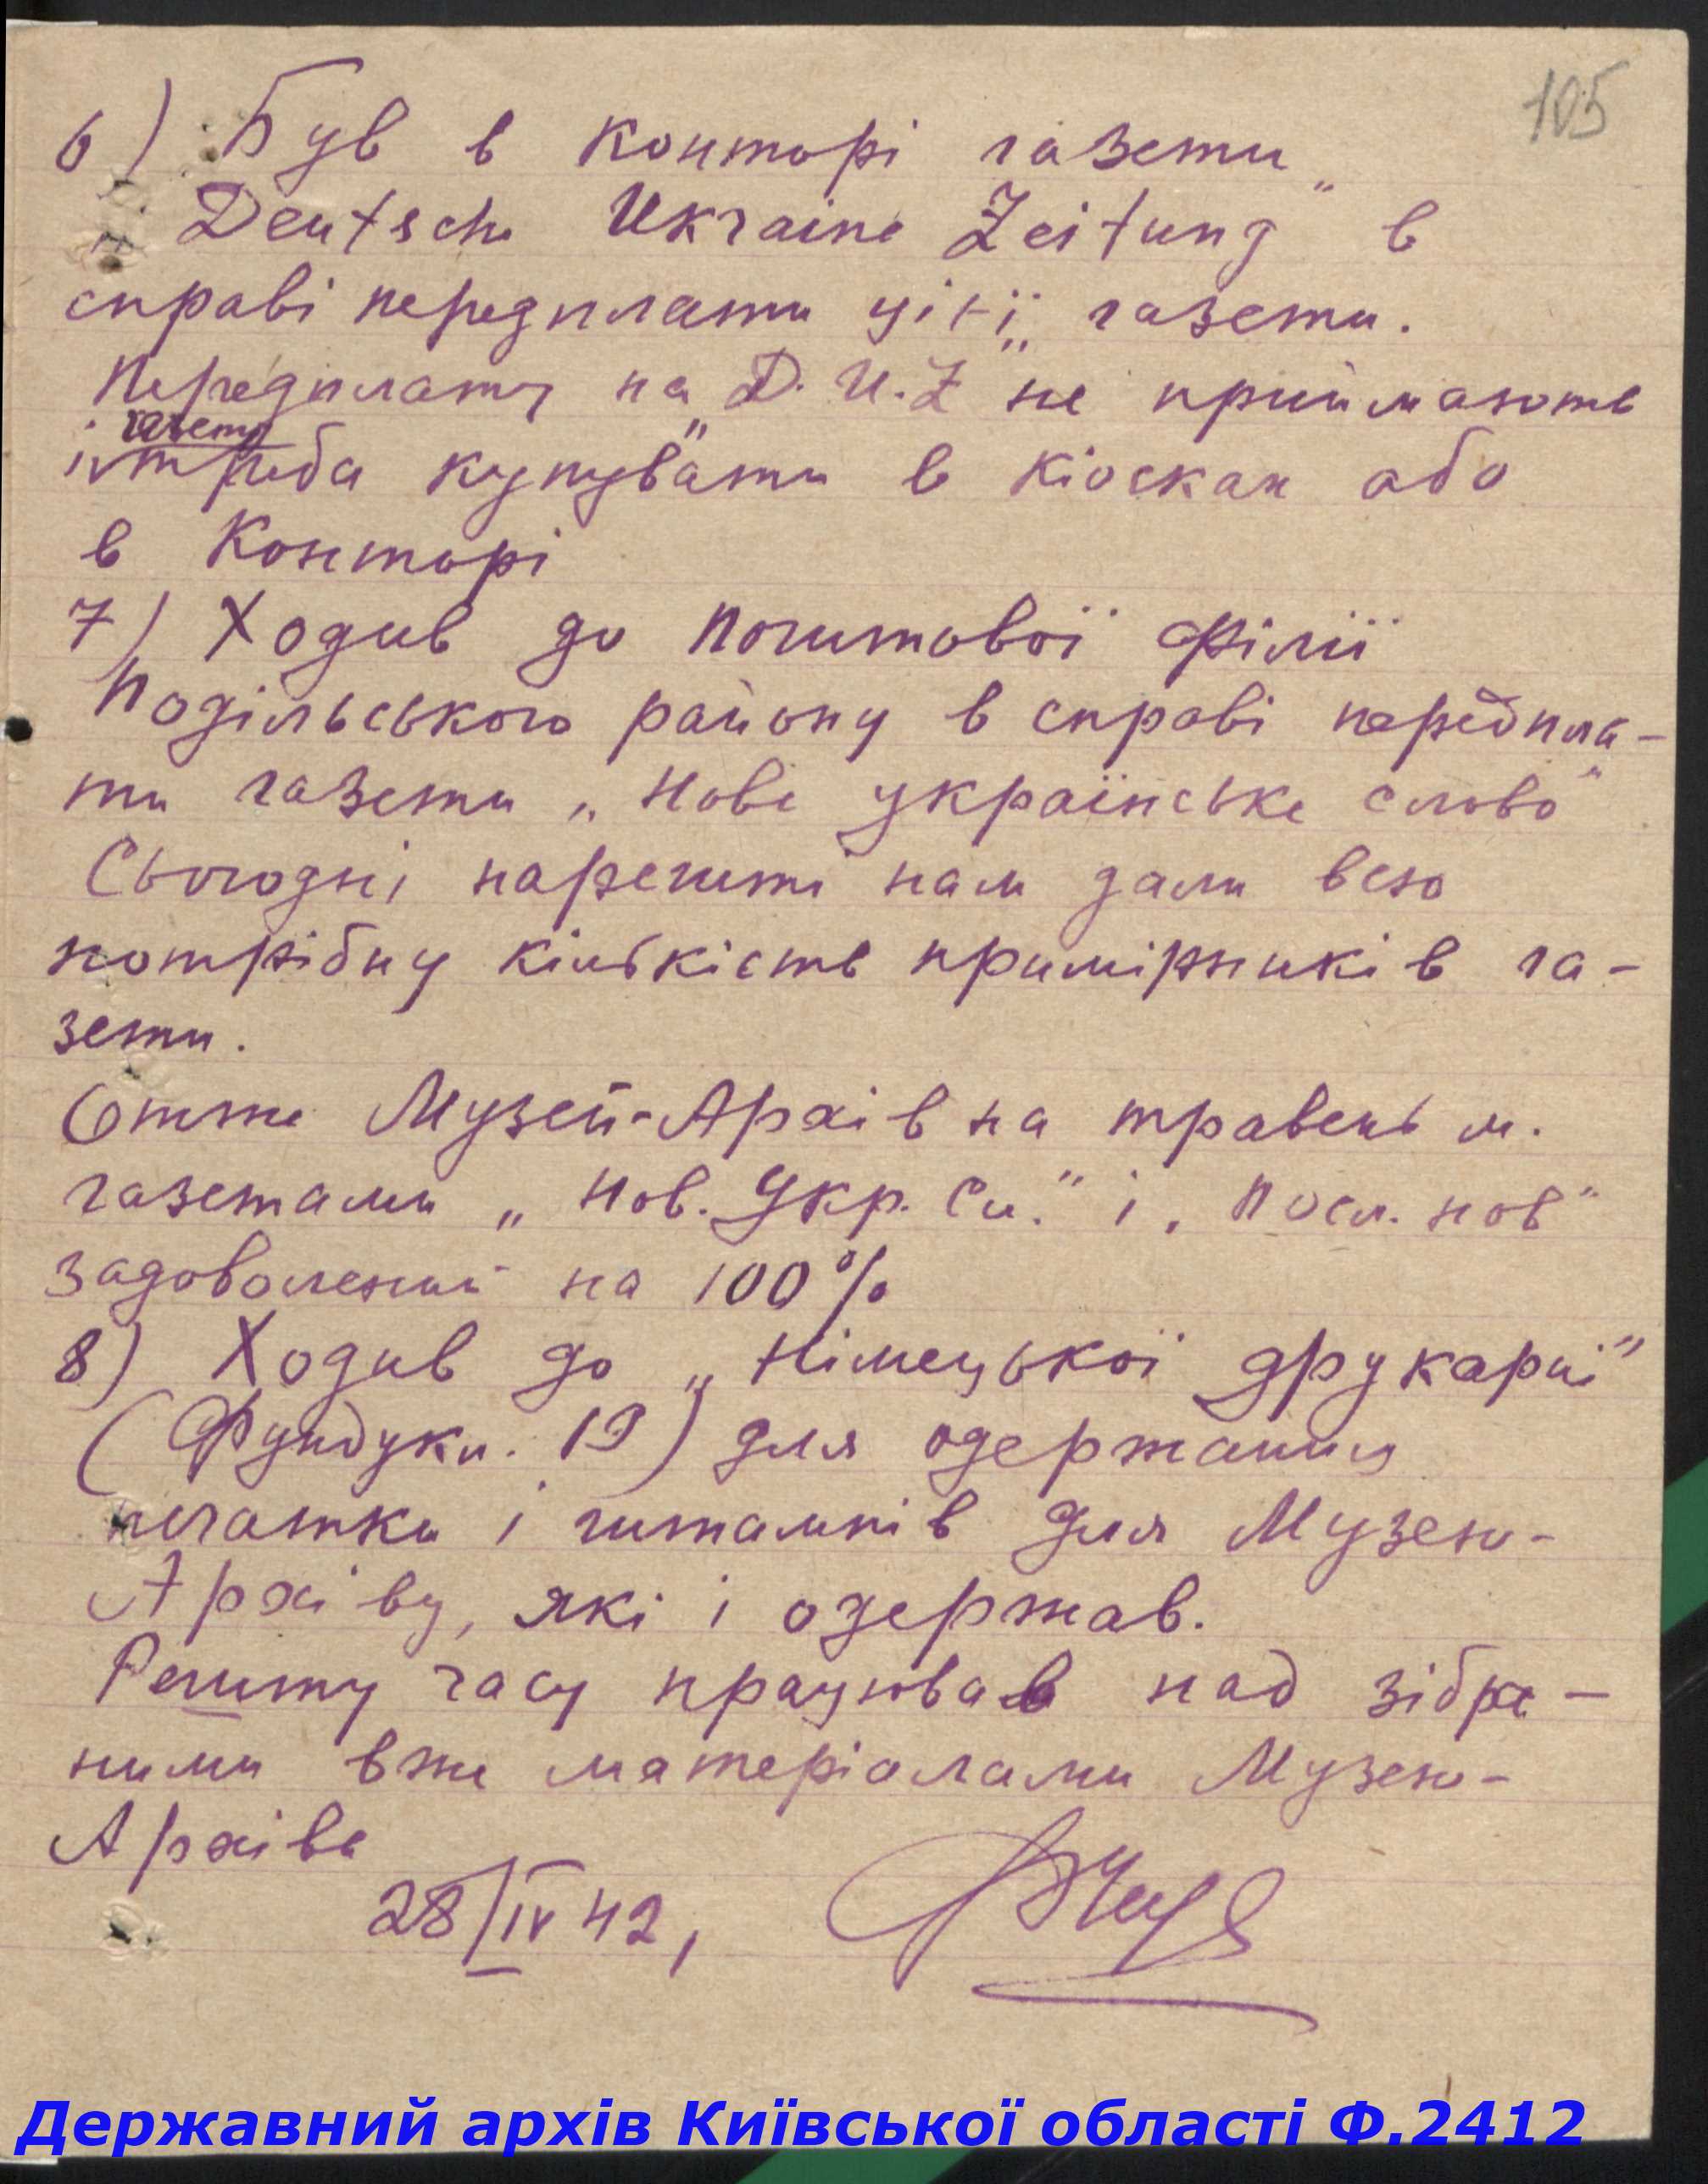 105
6) Був в конторі газети
„Deutsche Ukraine Zeitung" в
справі передплати цієї газети.
Передплату на „D. U. Z" не приймають
газету
і треба купувати в кіосках або
в конторі
7) Ходив до поштової філії
Подільського району в справі передпла-
ти газети „Нове українське слово"
Сьогодні нарешті нам дали всю
потрібну кількість примірників га-
зети.
Отже Музей-Архів на травень м.
газетами „Нов. Укр. Сл." і „Посл. нов"
задоволений на 100%
8) Ходив до „Німецької друкарні"
(Фундукл. 19) для одержання
печатки і штампів для Музею-
Архіву, які і одержав.
Решту часу працював над зібра-
ними вже матеріалами Музею-
Архіву
28/IV 42,
Державний архів Київської області Ф.2412